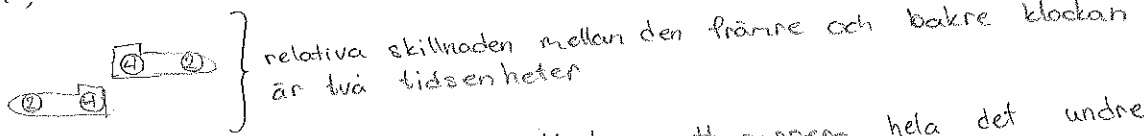 relativa skillnaden mellan den främre och bakre klockan
är två tidsenheter
4 2
2 4
hela det undre